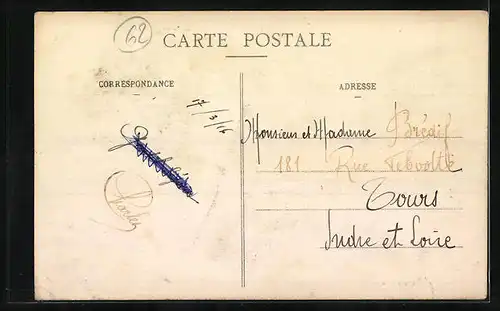 62
CARTE POSTALE
CORRESPONDANCE
ADRESSE
17/3/16
Monsieur et Madame Brédif
181 Rue Febvotte
Tours
Indre et Loire